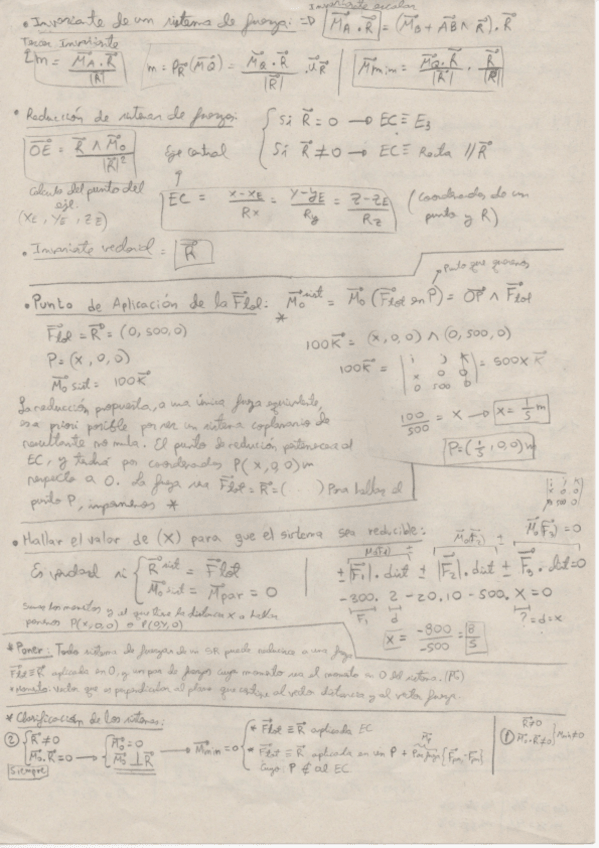 Invariante escalar
• Invariante de un sistema de fuerza: => M⃗A · R⃗ = (M⃗B + AB⃗ ∧ R⃗) · R⃗
Tercer Invariante
Im = M⃗A · R⃗ / |R⃗| m = PR⃗ (M⃗Q) = M⃗Q · R⃗ / |R⃗| · U⃗R M⃗min = M⃗Q · R⃗ / |R⃗| · R⃗ / |R⃗|
• Reducción de sistemas de fuerzas:
Si R⃗ = 0 → EC ≡ E3
OE⃗ = R⃗ ∧ M⃗o / |R⃗|² Eje central Si R⃗ ≠ 0 → EC ≡ Recta // R⃗
Calculo del punto del eje.
(XE, YE, ZE)
EC = x - xE / Rx = y - yE / Ry = z - zE / Rz (coordenadas de un punto y R)
• Invariante vectorial = R⃗
Punto que queramos
• Punto de Aplicación de la F⃗tot: M⃗o sist = M⃗o (F⃗tot en P) = OP⃗ ∧ F⃗tot
*
F⃗tot = R⃗ = (0, 500, 0)
100K⃗ = (x, 0, 0) ∧ (0, 500, 0)
P = (x, 0, 0)
100K⃗ = | i j K / x 0 0 / 0 500 0 | = 500X K⃗
M⃗o sist = 100K⃗
100 / 500 = x → x = 1/5 m
P = (1/5, 0, 0) m
La reducción propuesta, a una única fuerza equivalente,
es a priori posible por ser un sistema coplanario de
resultante no nula. El punto de reducción pertenece al
EC, y tendrá por coordenadas P(x, 0, 0) m
respecto a O. La fuerza sea F⃗tot = R⃗ = ( ) Para hallar el
punto P, imponemos *
• Hallar el valor de (X) para que el sistema sea reducible:
Es verdad si R⃗ sist = F⃗tot
M⃗o sist = M⃗par = 0
± |F⃗1| · dist ± |F⃗2| · dist ± F⃗3 · dist = 0
-300 · 2 - 20 · 10 - 500 · X = 0
F1 d ? = d = x
x = -800 / -500 = 8/5
ponemos P(x, 0, 0) o P(0, y, 0)
* Poner: Todo sistema de fuerzas de un SR puede reducirse a una fuerza
F⃗tot ≡ R⃗ aplicada en O, y un par de fuerzas cuyo momento sea el momento en O del sistema.
* Momento: Vector que es perpendicular al plano que contiene al vector distancia y al vector fuerza.
* Clasificación de los sistemas:
② R⃗ ≠ 0
M⃗o · R⃗ = 0 → M⃗o = 0
M⃗o ⊥ R⃗ → M⃗min = 0
* F⃗tot ≡ R⃗ aplicada EC
* F⃗tot ≡ R⃗ aplicada en un P + Par fuerzas
Cuyo: P ∉ al EC
Siempre
① R⃗ ≠ 0
M⃗o · R⃗ ≠ 0 Min ≠ 0